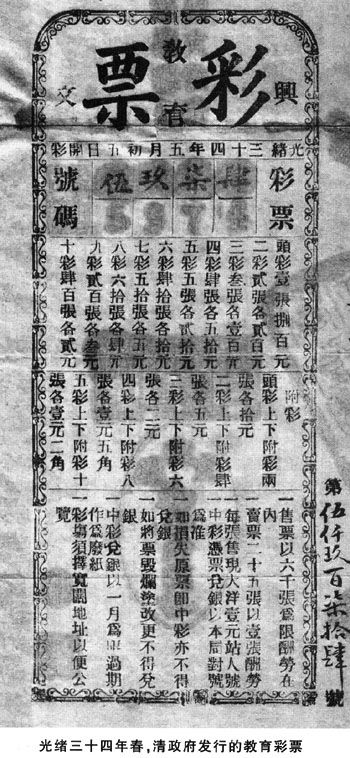 興
彩票
教育
文
光緒三十四年五月初五日開彩
彩票
號碼
伍玖柒肆
5974
頭彩壹張捌百元
二彩貳張各貳百元
三彩叁張各壹百元
四彩肆張各五拾元
五彩五張各貳拾元
六彩肆拾張各拾元
七彩五拾張各五元
八彩六拾張各肆元
九彩貳百張各叁元
十彩肆百張各貳元
附彩
頭彩上下附彩兩
張各拾元
二彩上下附彩肆
張各五元
三彩上下附彩六
張各二元
四彩上下附彩八
張各壹元五角
五彩上下附彩十
張各壹元二角
一售票以六千張爲限酬勞在
內
一賣票二十五張以壹張酬勞
一每張售現大洋壹元站人號
一中彩憑票兌銀以本局對號
爲准
一如損失原票卽中彩亦不得
兌銀
一如將票毀爛塗改更不得兌
銀
一中彩兌銀以一月爲率過期
作爲廢紙
一彩塲須擇寬闊地址以便公
覽
第伍仟玖百柒拾肆號
光绪三十四年春,清政府发行的教育彩票